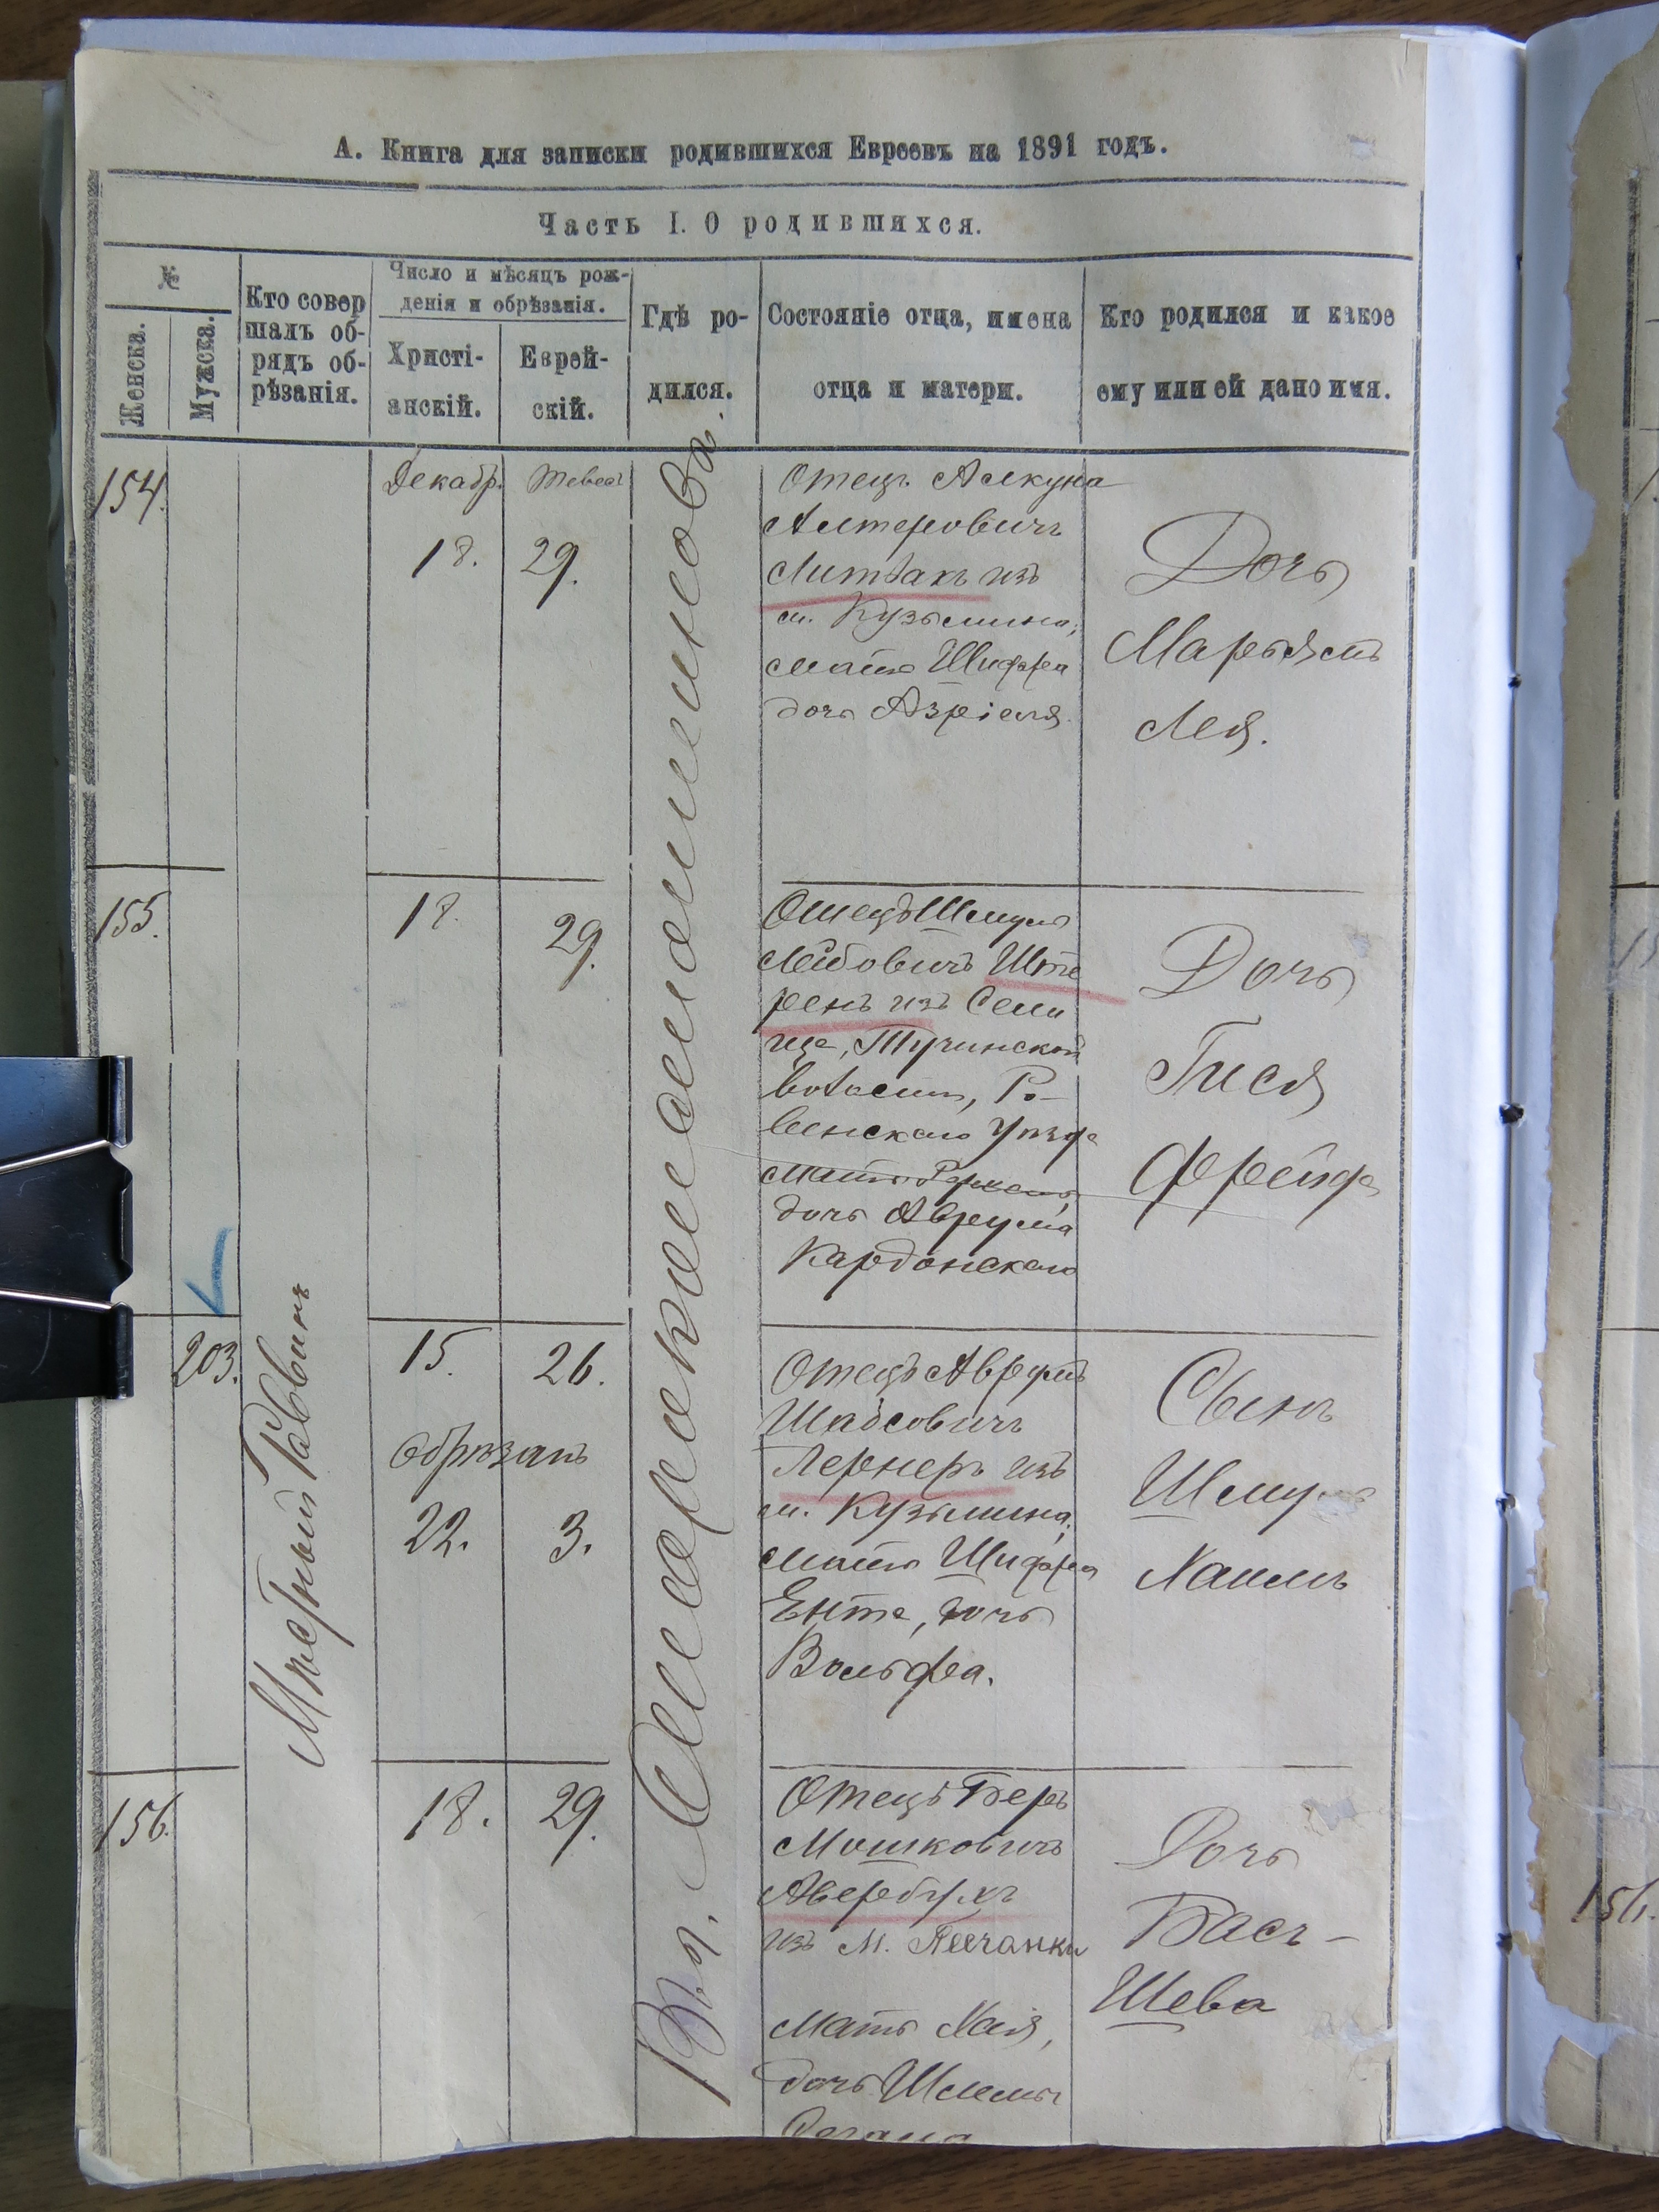 А. Книга для записки родившихся Евреевъ на 1891 годъ.
Часть I. О родившихся.
№
Женска.
Мужска.
Кто совер
шалъ об-
рядъ об-
рѣзанія.
Число и мѣсяцъ рож-
денія и обрѣзанія.
Христі-
анскій.
Еврей-
скій.
Гдѣ ро-
дился.
Состояніе отца, имена
отца и матери.
Кто родился и какое
ему или ей дано имя.
154.
Декабр.
18.
29.
Отецъ
Алтеровичъ
Литвакъ изъ
м. Кузьмина,
мать Шифра
дочь Азріеля.
Дочь
Марьямъ
Лея.
155.
18.
29.
Отецъ Шмуль
Лейбовичъ Ште
ренъ изъ Сели
ще, Тучинской
волости, Ро-
венскаго Уѣзда
мать
дочь Аврума
Кардонскаго
Дочь
Гися
Фрейда
203.
Мѣстный Раввинъ
15.
26.
обрѣзанъ
22.
3.
Отецъ Аврумъ
Шабсовичъ
Лернеръ изъ
м. Кузьмина,
мать Шифра
Енте, дочь
Вольфа.
Сынъ
Шмуль
Хаимъ
156.
18.
29.
Отецъ Беръ
Мошковичъ
Авербухъ
изъ М. Песчанки
Мать Хая,
дочь Шлемы
Дочь
Бась-
Шева
Въ м. Староконстантиновѣ.
156.